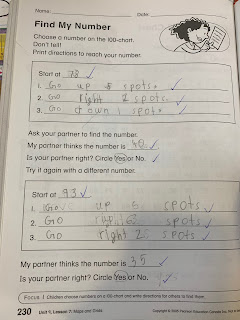 Name: Date:
Find My Number
Choose a number on the 100-chart.
Don't tell!
Print directions to reach your number.
Start at 78
1. Go up 5 spots.
2. Go right 2 spots.
3. Go down 1 spot.
Ask your partner to find the number.
My partner thinks the number is 40.
Is your partner right? Circle Yes or No.
Try it again with a different number.
Start at 93
1. Go up spots
2. Go spots
3. Go right 2 spots
My partner thinks the number is 35
Is your partner right? Circle Yes or No.
Focus | Children choose numbers on a 100-chart and write directions for others to find them.
230 Unit 9, Lesson 7: Maps and Trails
Copyright © 2009 Pearson Education Canada Inc.